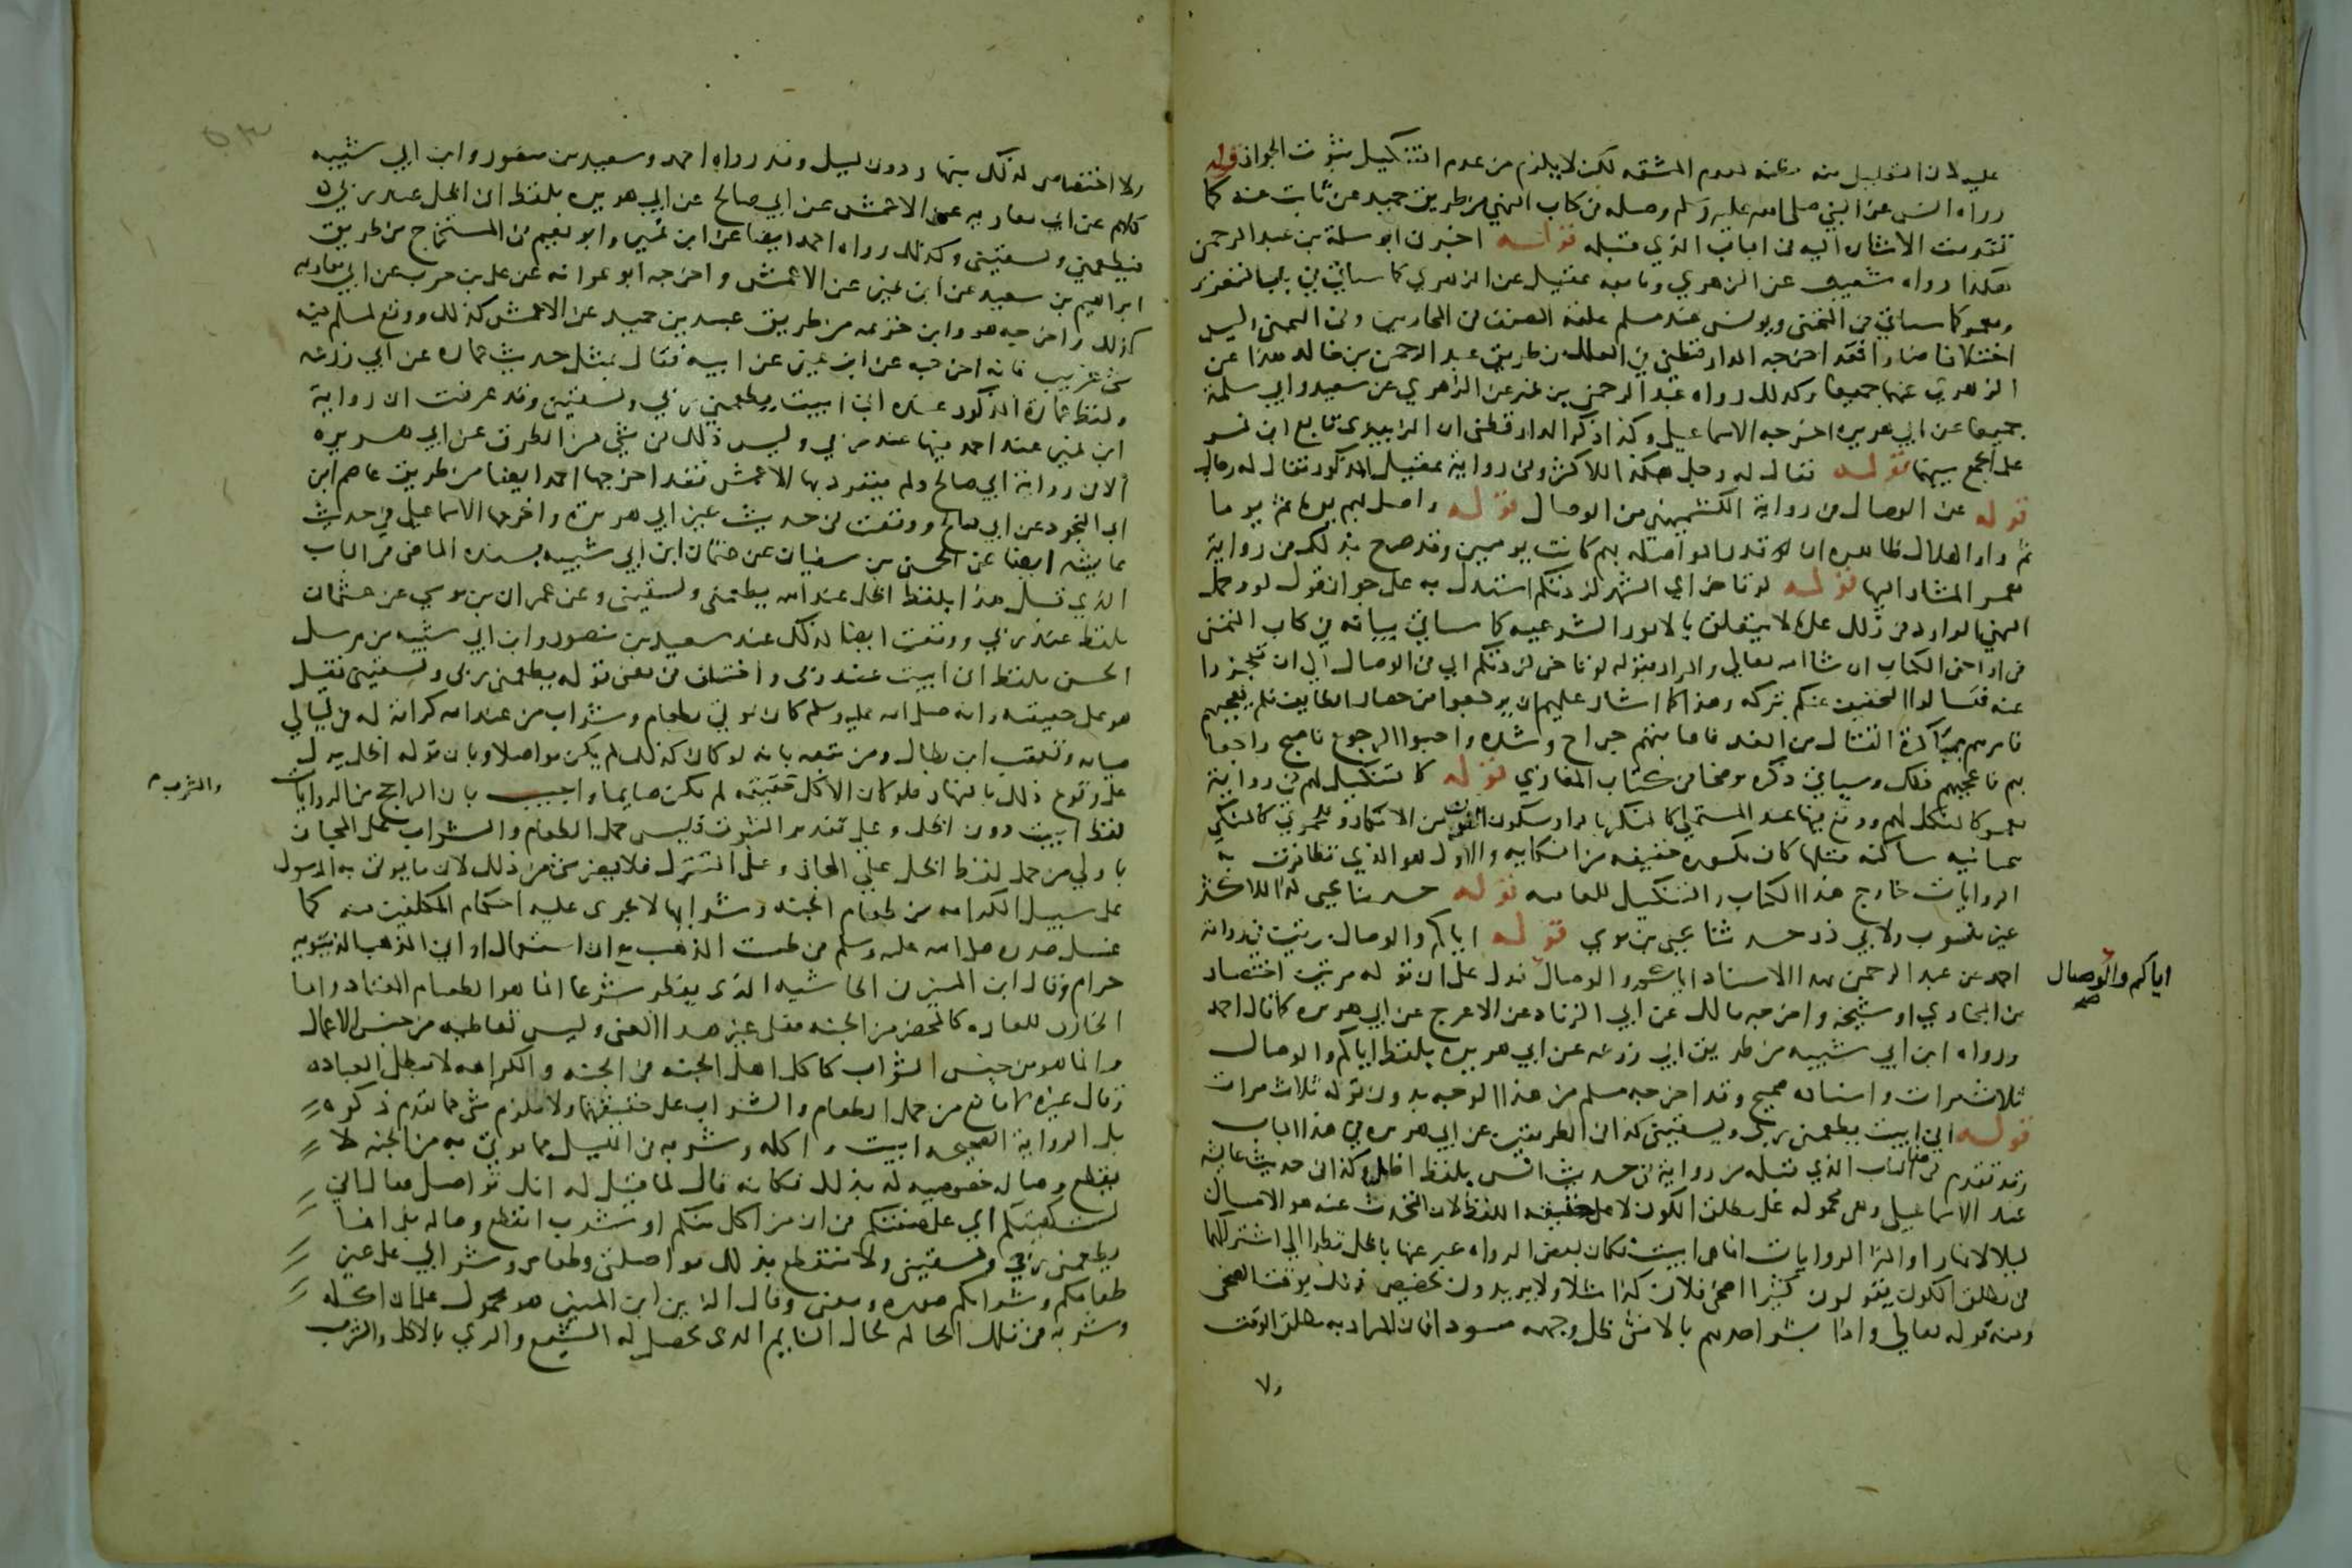 عليه لان التقليل منه مظنه لعدم المشقه لكن لا يلزم من عدم التنكيل ثبوت الجواز قوله
رواه انس عن النبي صلى الله عليه وسلم وصله في كتاب التمني من طريق حميد عن ثابت عنه كما
تقدمت الاشاره اليه في الباب الذي قبله قوله اخبرني ابو سلمة بن عبد الرحمن
هكذا رواه شعيب عن الزهري وتابعه عقيل عن الزهري كما سياتي في باب التعزير
ومعمر كما سياتي في التمني ويونس عند مسلم
اختلافا ضارا فقد اخرجه الدارقطني في العلل من طريق عبد الرحمن بن خالد هذا عن
الزهري عنهما جميعا وكذلك رواه عبد الرحمن بن نمر عن الزهري عن سعيد وابي سلمة
جميعا عن ابي هريره اخرجه الاسماعيلي وكذا ذكر الدارقطني ان الزبيدي تابع ابن نمر
على الجمع بينهما قوله فقال له رجل هكذا للاكثر وفي رواية عقيل المذكور فقال له رجال
قوله عن الوصال في رواية الكشميهني من الوصال قوله واصل بهم يوما ثم يوما
ثم راوا الهلال ظاهره ان قدر المواصله بهم كانت يومين وقد صرح بذلك في رواية
معمر المشار اليها قوله لو تاخر اي الشهر لزدتكم استدل به على جواز قول لو وحمل
النهي الوارد في ذلك على ما لا يتعلق بالامور الشرعيه كما سياتي بيانه في كتاب التمني
في اواخر الكتاب ان شا الله تعالى والمراد بقوله لو تاخر لزدتكم اي في الوصال الى ان تعجزوا
عنه فتسالوا التخفيف عنكم بتركه وهذا كما اشار عليهم ان يرجعوا من حصار الطايف فلم يعجبهم
فامرهم بمباكرة القتال من الغد فاصابتهم جراح وشده واحبوا الرجوع فاصبح راجعا
بهم فاعجبهم ذلك وسياتي ذكره موضحا في كتاب المغازي قوله كالتنكيل لهم في رواية
معمر كالمنكل لهم ووقع فيها عند المستملي كالمنكر بالراء وسكون النون من الانكار وللحموي كالمنكي
بتحتانيه ساكنه قبلها كاف مكسوره خفيفه من النكايه والاول هو الذي تظافرت به
الروايات خارج هذا الكتاب والتنكيل المعاقبه قوله حدثنا يحيى كذا للاكثر
غير منسوب ولابي ذر حدثنا يحيى بن موسى قوله اياكم والوصال مرتين في رواية
احمد عن عبد الرزاق بهذا الاسناد اياكم والوصال فدل على ان قوله مرتين اختصار
اياكم والوصال صح
من البخاري او شيخه واخرجه مالك عن ابي الزناد عن الاعرج عن ابي هريره كما قال احمد
ورواه ابن ابي شيبه من طريق ابي زرعه عن ابي هريره بلفظ اياكم والوصال
ثلاث مرات واسناده صحيح وقد اخرجه مسلم من هذا الوجه بدون قوله ثلاث مرات
قوله اني ابيت يطعمني ربي ويسقيني كذا في الطريقين عن ابي هريره في هذا الباب
وقد تقدم في الباب الذي قبله من رواية في حديث انس بلفظ اظل وكذا في حديث عايشه
عند الاسماعيلي وهي محموله على مطلق الكون لا على حقيقه اللفظ لان المتحدث عنه هو الامساك
ليلا لا نهارا واكثر الروايات انما هي ابيت فكان بعض الرواه عبر عنها باظل نظرا الى اشتراكهما
في مطلق الكون يقولون كثيرا اضحى فلان كذا مثلا ولا يريدون تخصيص ذلك بوقت الضحى
ومنه قوله تعالى واذا بشر احدهم بالانثى ظل وجهه مسودا فان المراد به مطلق الوقت
ولا
ولا اختصاص لذلك بنهار دون ليل وقد رواه احمد وسعيد بن منصور وابن ابي شيبه
كلهم عن ابي معاويه عن الاعمش عن ابي صالح عن ابي هريره بلفظ اني اظل عند ربي
فيطعمني ويسقيني وكذلك رواه احمد ايضا عن ابن نمير وابو نعيم في المستخرج من طريق
ابراهيم بن سعيد عن ابن نمير عن الاعمش واخرجه ابو عوانه عن علي بن حرب عن ابي معاويه
كذلك واخرجه هو وابن خزيمه من طريق عبيد بن حميد عن الاعمش كذلك ووقع لمسلم فيه
شي غريب فانه اخرجه عن ابن نمير عن ابيه فقال بمثل حديث عماره عن ابي زرعه
ولفظ عمارة المذكور عنده اني ابيت يطعمني ربي ويسقيني وقد عرفت ان رواية
ابن نمير عند احمد فيها عند ربي وليس ذلك في شي من الطرق عن ابي هريره
الا في رواية ابي صالح ولم ينفرد بها الاعمش فقد اخرجها احمد ايضا من طريق عاصم ابن
ابي النجود عن ابي صالح ووقعت في حديث غير ابي هريره واخرجها الاسماعيلي في حديث
عايشه ايضا عن الحسن بن سفيان عن عثمان ابن ابي شيبه بسنده الماضي في الباب
الذي قبل هذا بلفظ اظل عند الله يطعمني ويسقيني وعن عمران بن موسى عن عثمان
بلفظ عند ربي ووقعت ايضا كذلك عند سعيد بن منصور وابن ابي شيبه من مرسل
الحسن بلفظ اني ابيت عند ربي واختلف في معنى قوله يطعمني ربي ويسقيني فقيل
هو على حقيقته وانه صلى الله عليه وسلم كان يوتى بطعام وشراب من عند الله كرامة له في ليالي
صيامه وتعقبه ابن بطال ومن تبعه بانه لو كان كذلك لم يكن مواصلا وبان قوله اظل يدل
على وقوع ذلك بالنهار فلو كان الاكل حقيقة لم يكن صايما واجيب بان الراجح من الروايات
والشرب
لفظ ابيت دون اظل وعلى تقدير الثبوت فليس حمل الطعام والشراب على المجاز
باولى من حمل لفظ اظل على المجاز وعلى التنزل فلا يضر شي من ذلك لان ما يوتى به الرسول
على سبيل الكرامه من طعام الجنه وشرابها لا يجري عليه احكام المكلفين فيه كما
غسل صدره صلى الله عليه وسلم في طست الذهب مع ان استعمال اواني الذهب الدنيويه
حرام وقال ابن المنير في الحاشيه الذي يفطر شرعا انما هو الطعام المعتاد واما
الخارق للعاده كالمحضر من الجنه فعلى غير هذا المعنى وليس تعاطيه من جنس الاعمال
وانما هو من جنس الثواب كاكل اهل الجنه في الجنه والكرامه لا تبطل العباده
وقال غيره لا مانع من حمل الطعام والشراب على حقيقتهما ولا يلزم شي مما تقدم ذكره
بل الرواية الصحيحه ابيت واكله وشربه في الليل مما يوتى به من الجنه لا
يقطع وصاله خصوصيه له بذلك فكانه قال لما قيل له انك تواصل فقال اني
لست كهيئتكم اي على صفتكم في ان من اكل منكم او شرب انقطع وصاله بل انما
يطعمني ربي ويسقيني ولا تنقطع بذلك مواصلتي وطعامي وشرابي على غير
طعامكم وشرابكم صورة ومعنى وقال الزين ابن المنير هو محمول على ان اكله
وشربه في تلك الحاله كحال النايم الذي يحصل له الشبع والري بالاكل والشرب